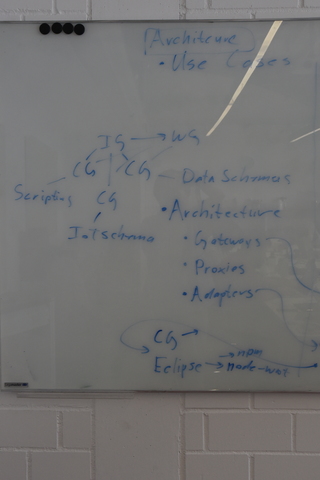 Architecure
• Use Cases
IG → WG
CG CG
Scripting
CG
Data Schemas
IoT schema
• Architecture
• Gateways
• Proxies
• Adapters
CG →
Eclipse → npm
→ node-wot